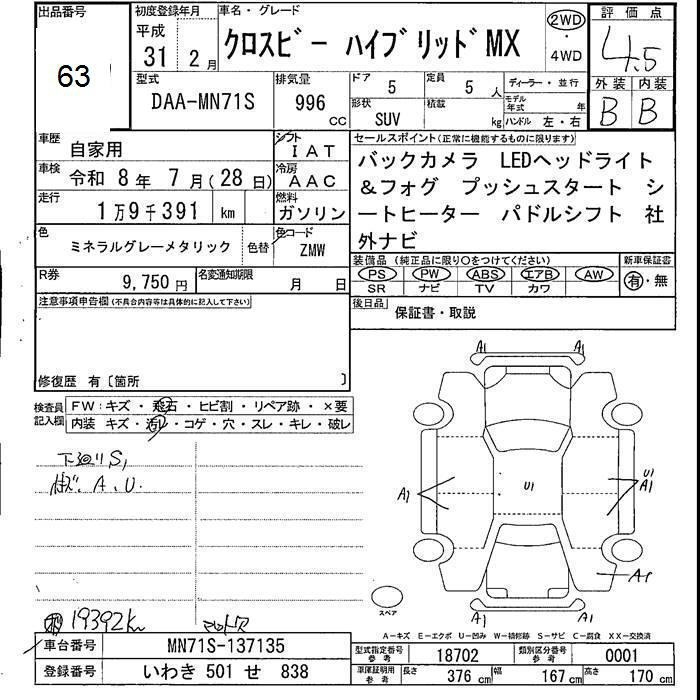 出品番号
63
初度登録年月
平成
31 年 2 月
車名・グレード
クロスビー ハイブリッドMX
2WD
・
4WD
評価点
4.5
型式
DAA-MN71S
排気量
996
CC
ドア
5
定員
5 人
形状
SUV
積載
kg
ディーラー・並行
モデル年式 年
ハンドル 左・右
外装 内装
B B
車歴
自家用
シフト
IAT
車検
令和 8 年 7 月(28日)
冷房
AAC
走行
1万9千391 km
燃料
ガソリン
色
ミネラルグレーメタリック
色替
色コード
ZMW
R券
9,750 円
名変通知期限
月 日
セールスポイント(正常に機能するものに限ります)
バックカメラ LEDヘッドライト
&フォグ プッシュスタート シ
ートヒーター パドルシフト 社
外ナビ
装備品 (純正品に限り○をつけてください)
PS PW ABS エアB AW
SR ナビ TV カワ
新車保証書
有・無
後日品
保証書・取説
注意事項申告欄(不具合内容等は具体的に記入して下さい)
修復歴 有〔箇所 〕
検査員記入欄
FW:キズ・飛石・ヒビ割・リペア跡・×要
内装 キズ・汚レ・コゲ・穴・スレ・キレ・破レ
下廻りS,
キズ、A、U.
19392km
マットス
A1 A1
A1
U1
U1
A1
A1
A1 A1
スペア
A-キズ E-エクボ U-凹み W-補修跡 S-サビ C-腐食 XX-交換済
車台番号
MN71S-137135
登録番号
いわき 501 せ 838
型式指定番号 参考
18702
類別区分番号 参考
0001
車庫証明用 参考
長さ 376 cm 幅 167 cm 高さ 170 cm